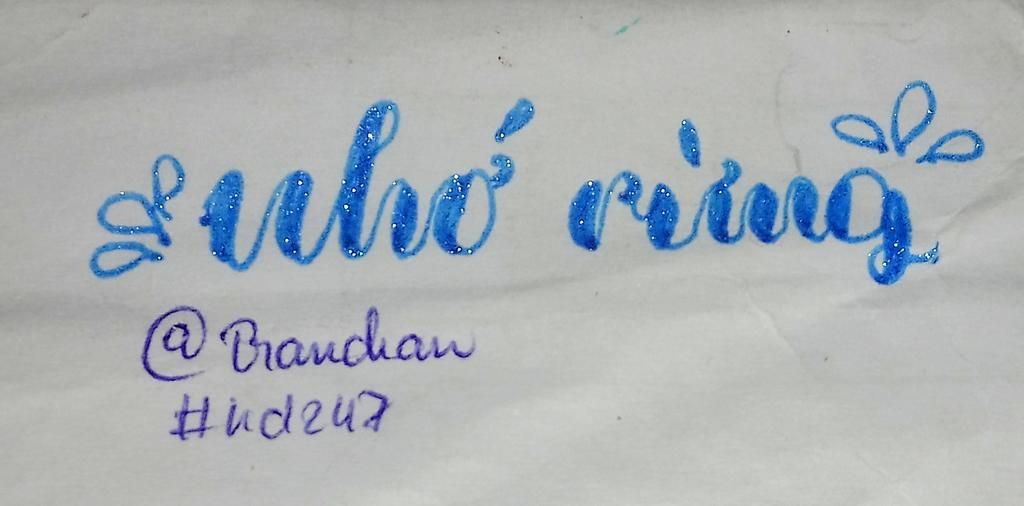 nhớ rừng
@Branchan
#nd247